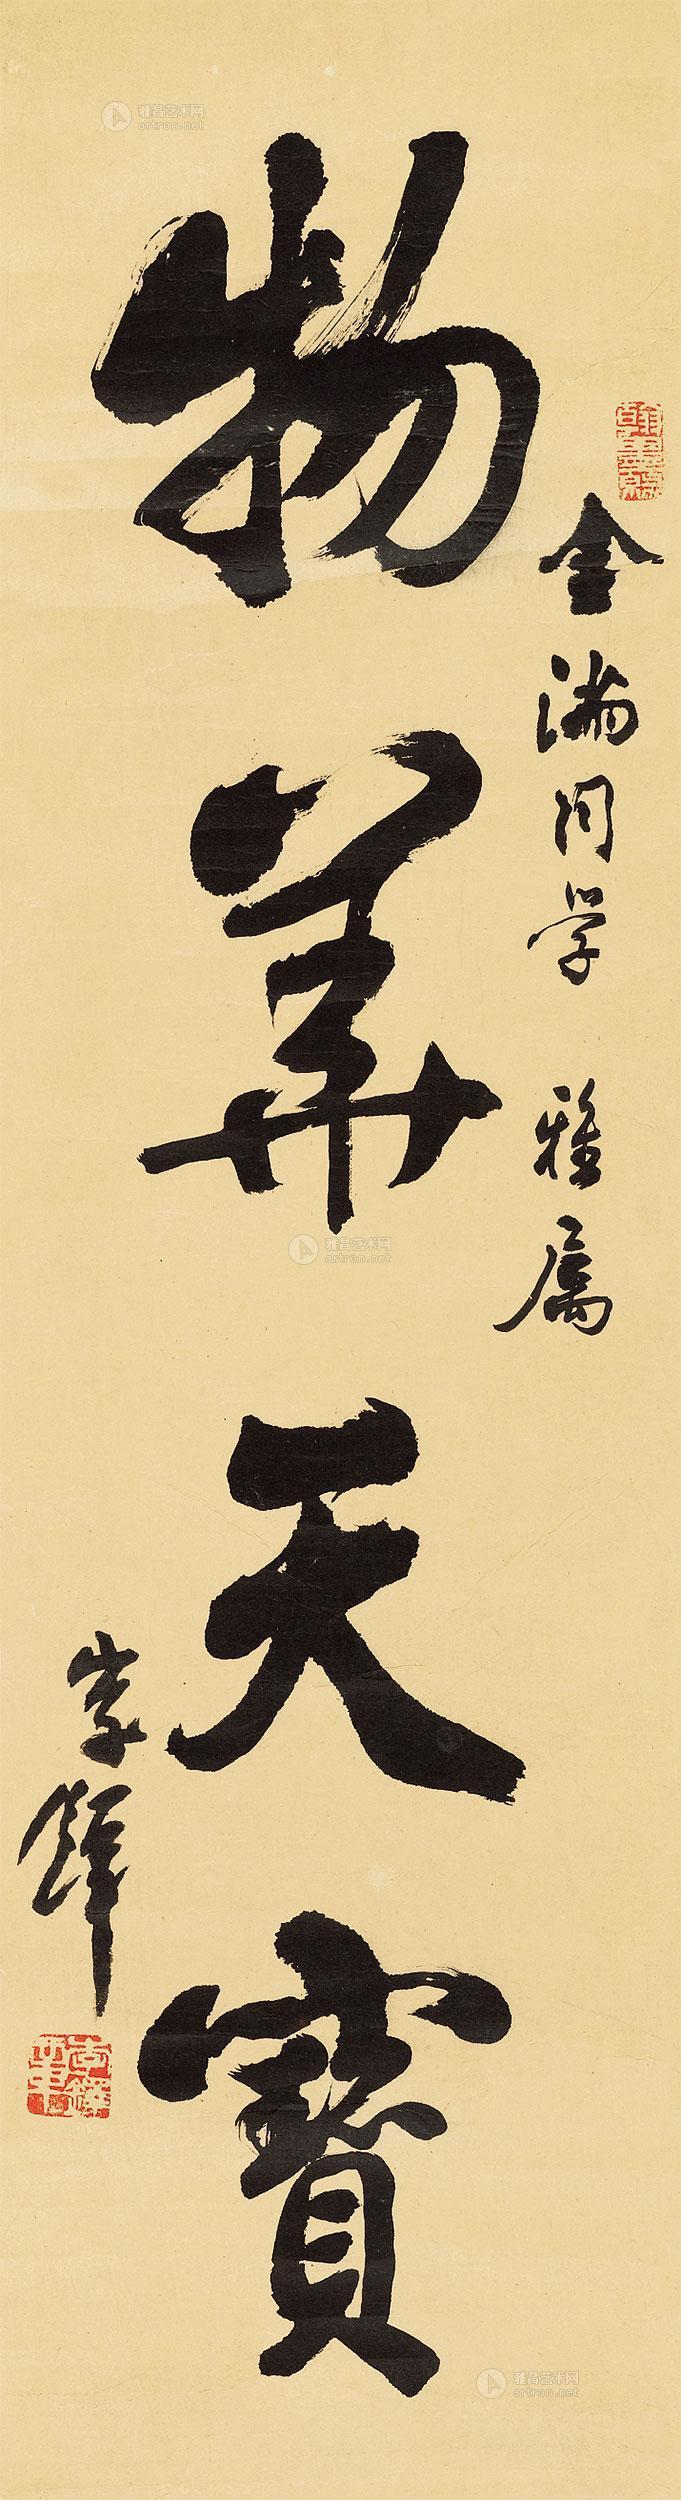 金满同学 雅属
物華天寶
李鐸
雅昌艺术网
artron.net
雅昌艺术网
artron.net
雅昌艺术网
artron.net